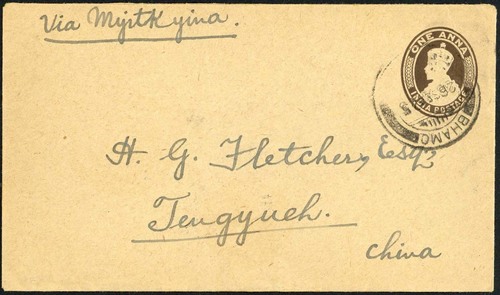 Via Myitkyina.
ONE ANNA
INDIA POSTAGE
BHAMO
H. G. Fletcher, Esqr
Tengyueh.
China